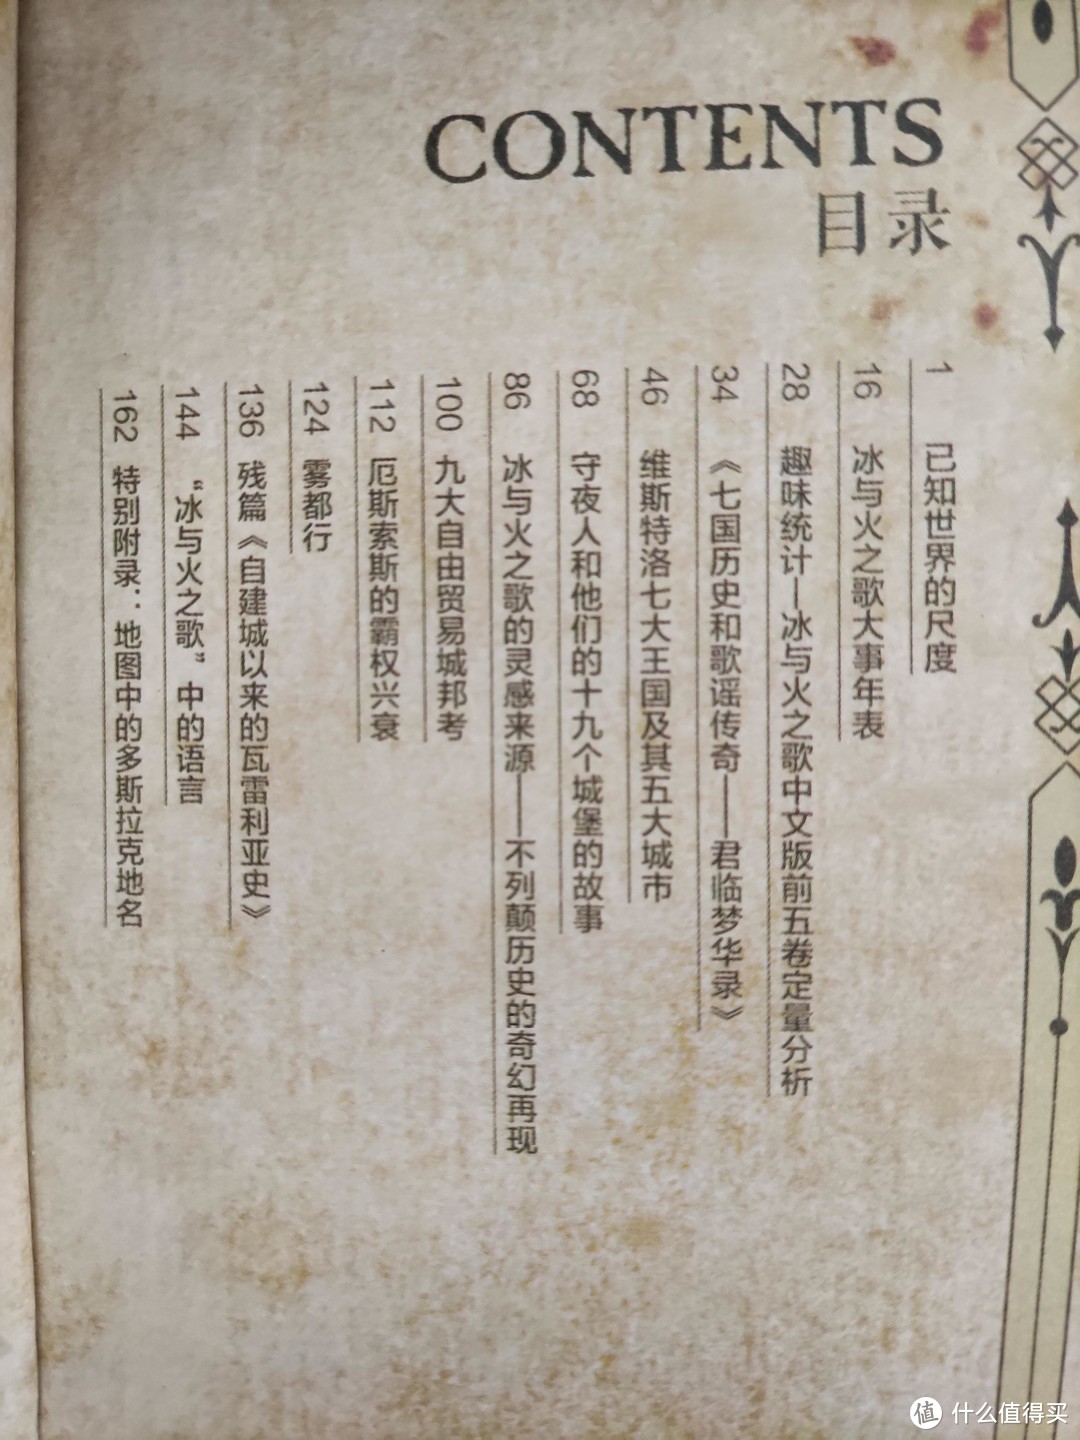 CONTENTS
目录
1 已知世界的尺度
16 冰与火之歌大事年表
28 趣味统计—冰与火之歌中文版前五卷定量分析
34 《七国历史和歌谣传奇——君临梦华录》
46 维斯特洛七大王国及其五大城市
68 守夜人和他们的十九个城堡的故事
86 冰与火之歌的灵感来源——不列颠历史的奇幻再现
100 九大自由贸易城邦考
112 厄斯索斯的霸权兴衰
124 雾都行
136 残篇《自建城以来的瓦雷利亚史》
144 “冰与火之歌”中的语言
162 特别附录：地图中的多斯拉克地名
值 什么值得买